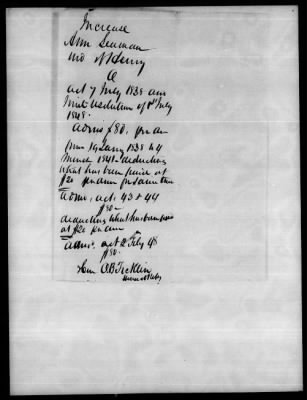 Increase
Ann Seaman
wid N Henry
act 7 July 1838 and
Joint Resolution of 1st July
1848.
admd $80. pr an
from 1 Jany 1838 to 4
March 1841 deducting
what has been paid at
$20 pr ann for same time
admd. act. 43 & 44
$80 -
deducting what has been paid
at $20 pr ann
admd. act 2 Feby 48
$80.
Hon O.B. Ficklin